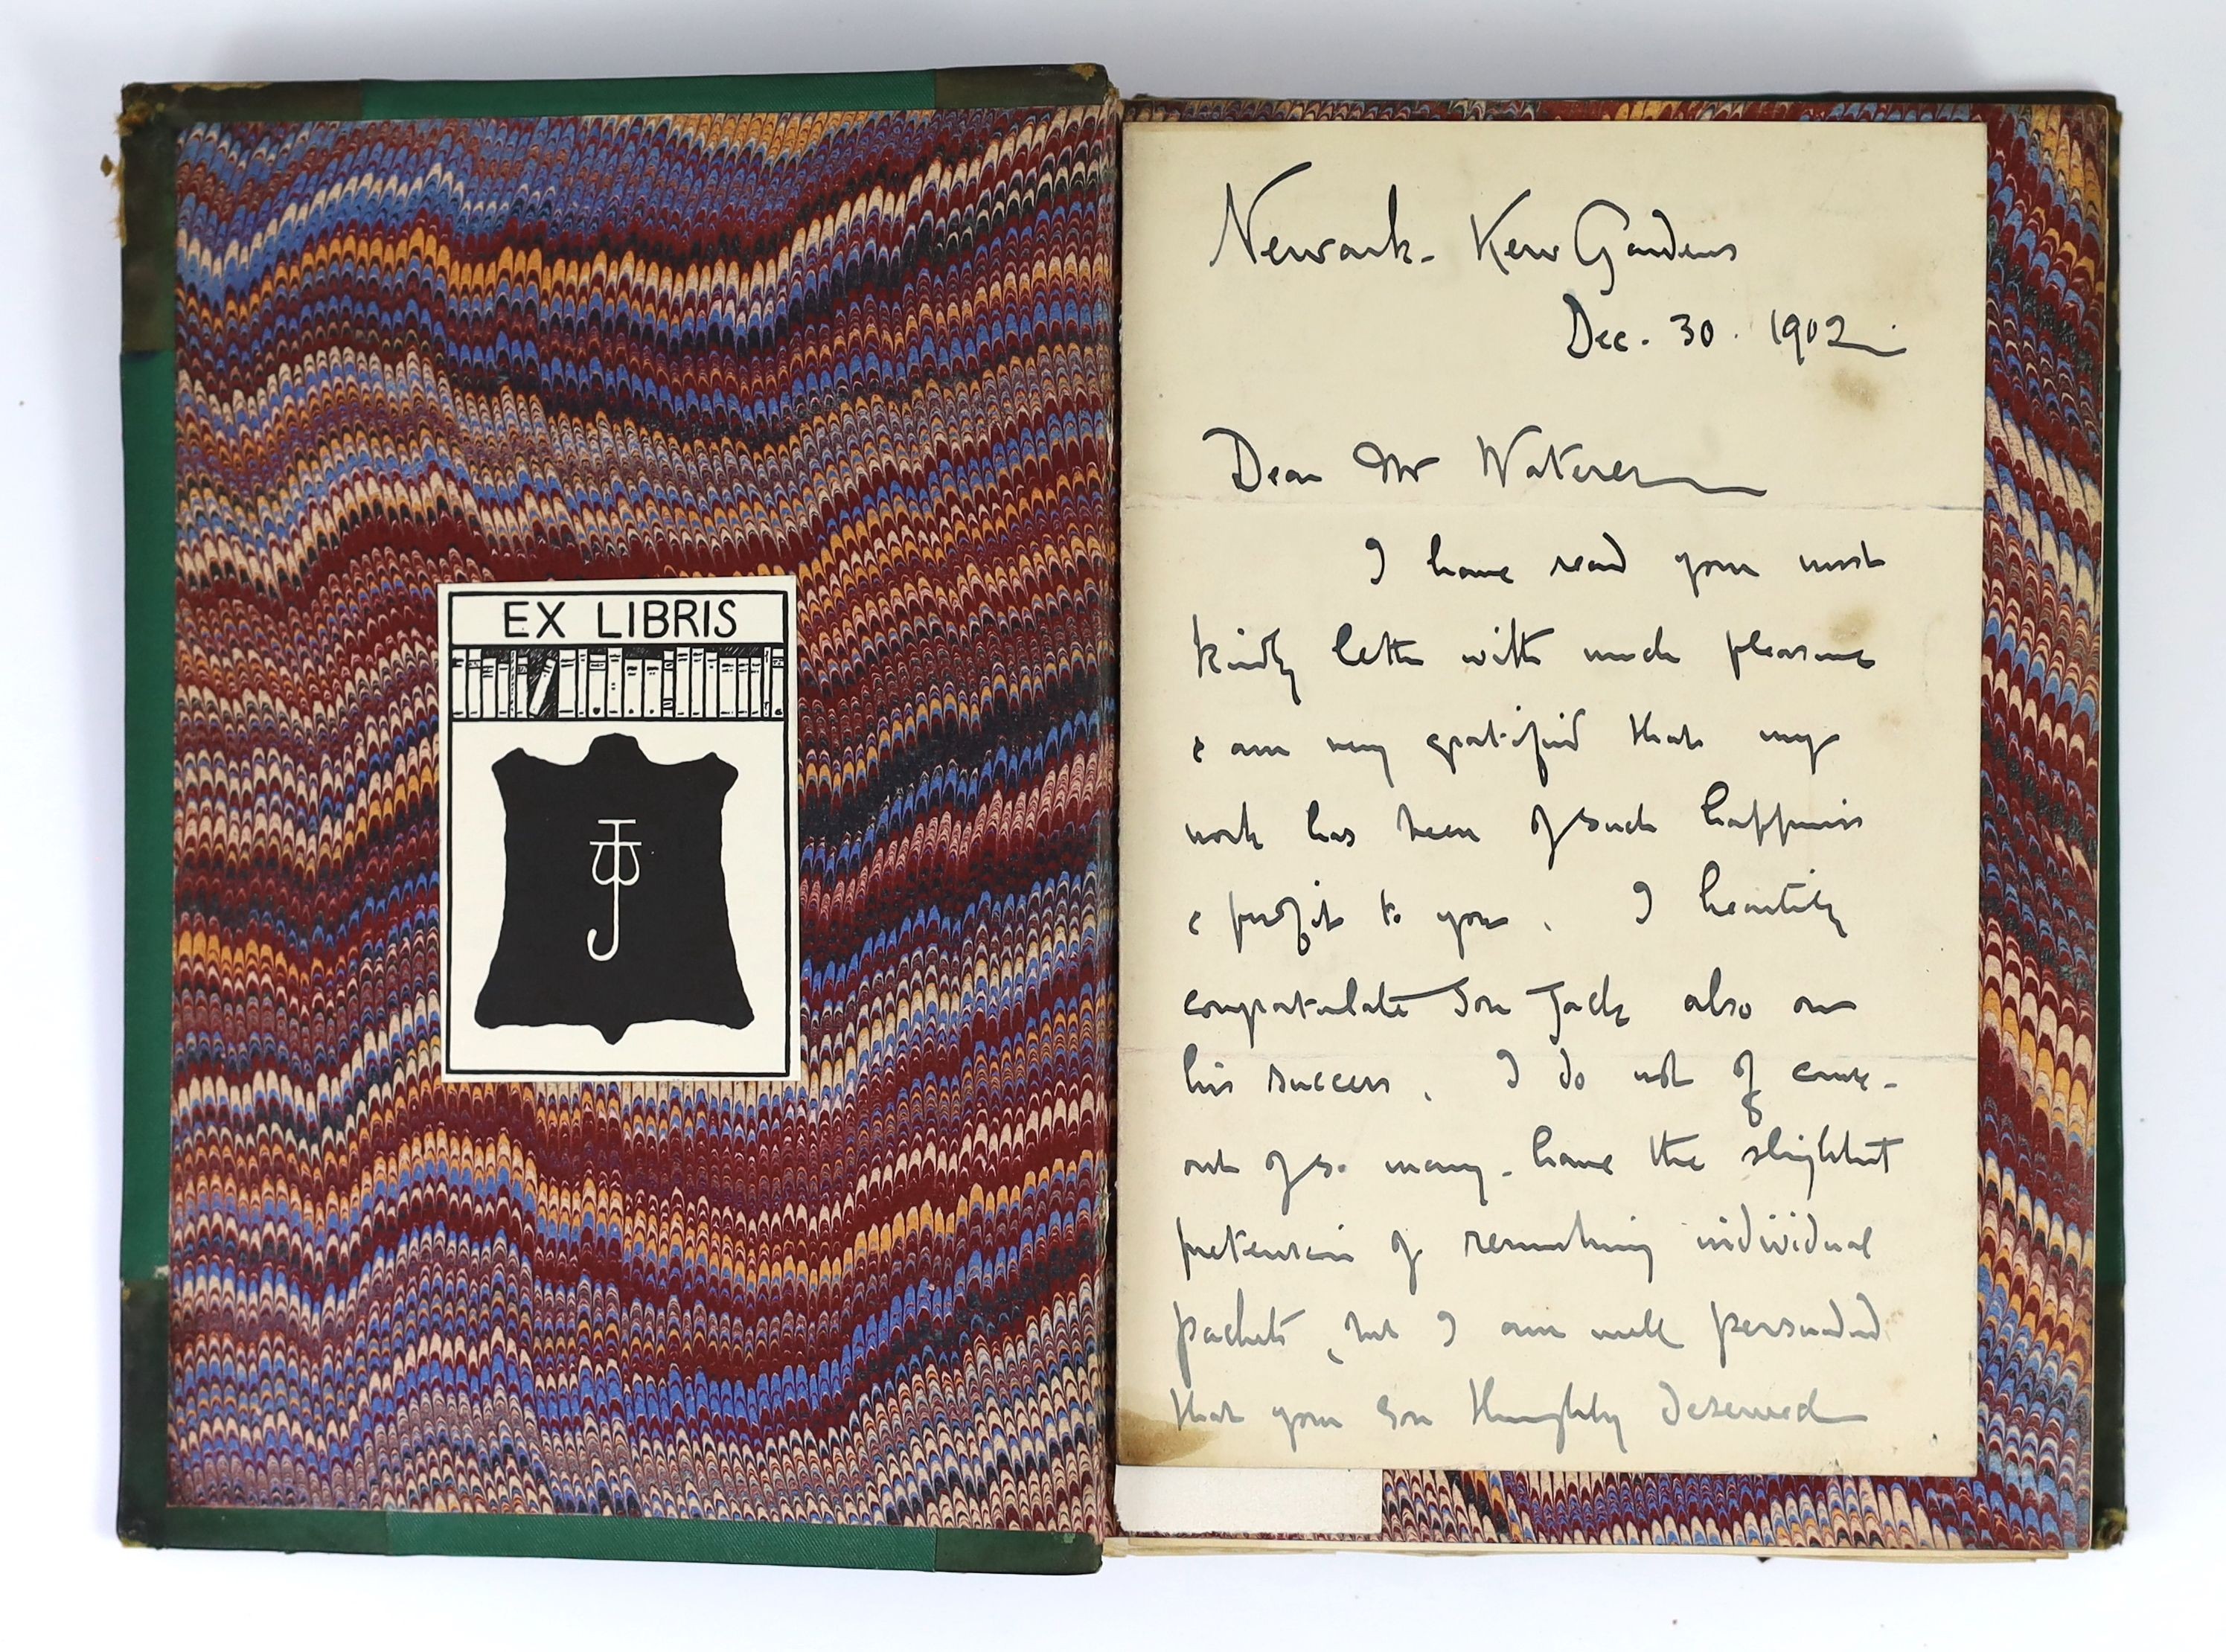 EX LIBRIS
Newark - Kew Gardens
Dec. 30. 1902
Dear Mr Waterer
I have read your most
kindly letter with much pleasure
& am very gratified that my
work has been of such happiness
& profit to you. I heartily
congratulate Son Jack also on
his success. I do not of course -
out of so many - have the slightest
pretension of remembering individual
packets, but I am well persuaded
that your Son thoroughly deserved